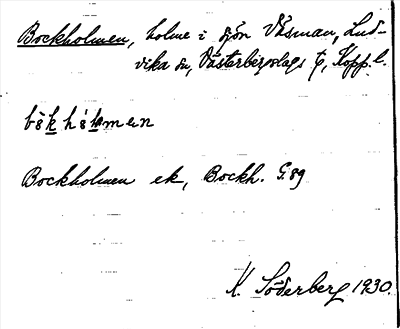 Bockholmen, holme i sjön Väsman, Lud-
vika sn, Västerbergslags tg, Kopp. l.
Bockholmen ek, Bockh. G.89
K. Söderberg 1930.